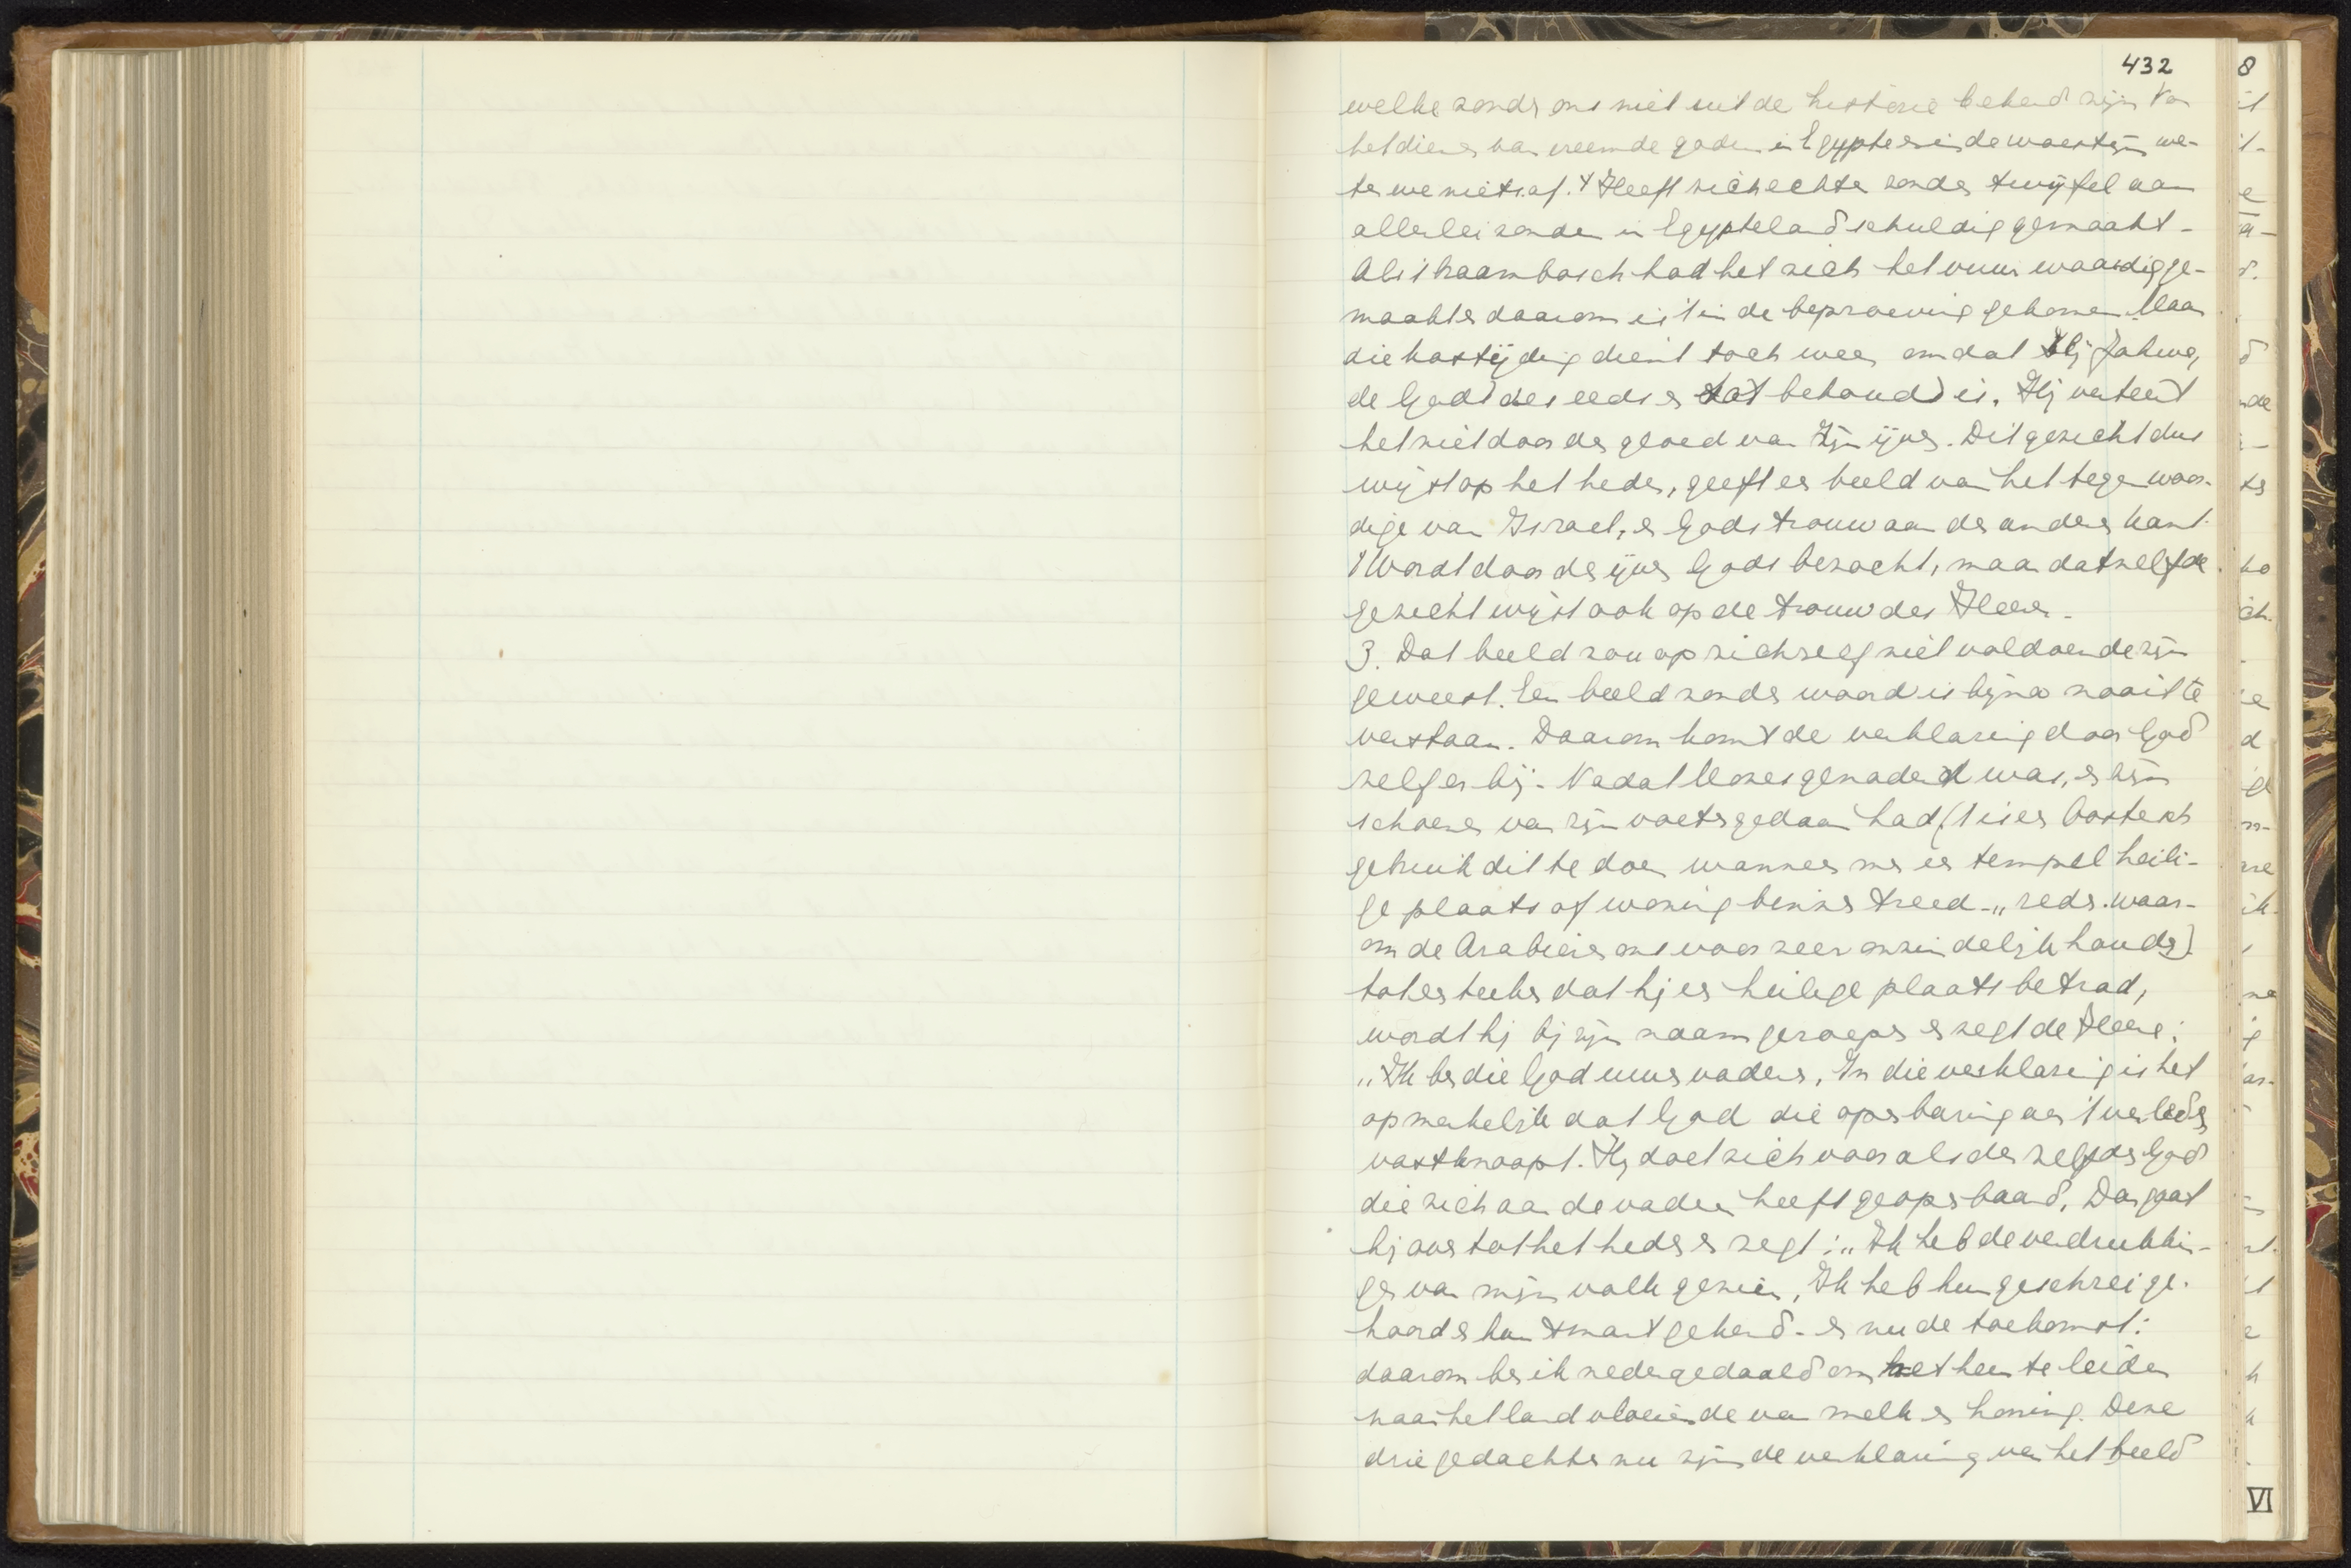 432
welke zonden ons niet uit de historie bekend zijn. Van
het dienen van vreemde goden in Egypte en in de woestijn we-
ten we niets af. 't Heeft zich echter zonder twijfel aan
allerlei zonden in Egypteland schuldig gemaakt.
Als 't braambosch had het zich het vuur waardig ge-
maakt en daarom is 't in de beproeving gekomen. Maar
die kastijding dient toch weer omdat Hij Jahwe,
de God des eeds en tot behoud is. Hij verteert
het niet door den gloed van Zijn ijver. Dit gezicht dus
wijst op het heden, geeft een beeld van het tegenwoor-
dige van Israel, en Gods trouw aan den anderen kant.
't Wordt door den ijver Gods bezocht, maar datzelfde
gezicht wijst ook op de trouw des Heeren.
3. Dat beeld zou op zichzelf niet voldoende zijn
geweest. Een beeld zonder woord is bijna nooit te
verstaan. Daarom komt de verklaring door God
zelf er bij. Nadat Mozes genaderd was, en zijn
schoenen van zijn voeten gedaan had, ('t is een Oostersch
gebruik dit te doen wanneer men een tempel heili-
ge plaats of woning binnen treed - „reden waar-
om de Arabieren ons voor zeer onzindelijk houden)
tot een teeken dat hij een heilige plaats betrad,
wordt hij bij zijn naam geroepen en zegt de Heere:
„Ik ben die God uwer vaderen, In die verklaring is het
opmerkelijk dat God die openbaring aan 't verleden
vastknoopt. Hij doet zich voor als dezelfde God
die zich aan de vaderen heeft geopenbaard. Dan gaat
hij over tot het heden en zegt: „Ik heb de verdrukkin-
gen van mijn volk gezien, Ik heb hun geschrei ge-
hoord en hun smart gekend - en nu de toekomst:
daarom ben ik nedergedaald om het heen te leiden
naar het land vloeiende van melk en honing. Deze
drie gedachten nu zijn de verklaring van het beeld
8
VI